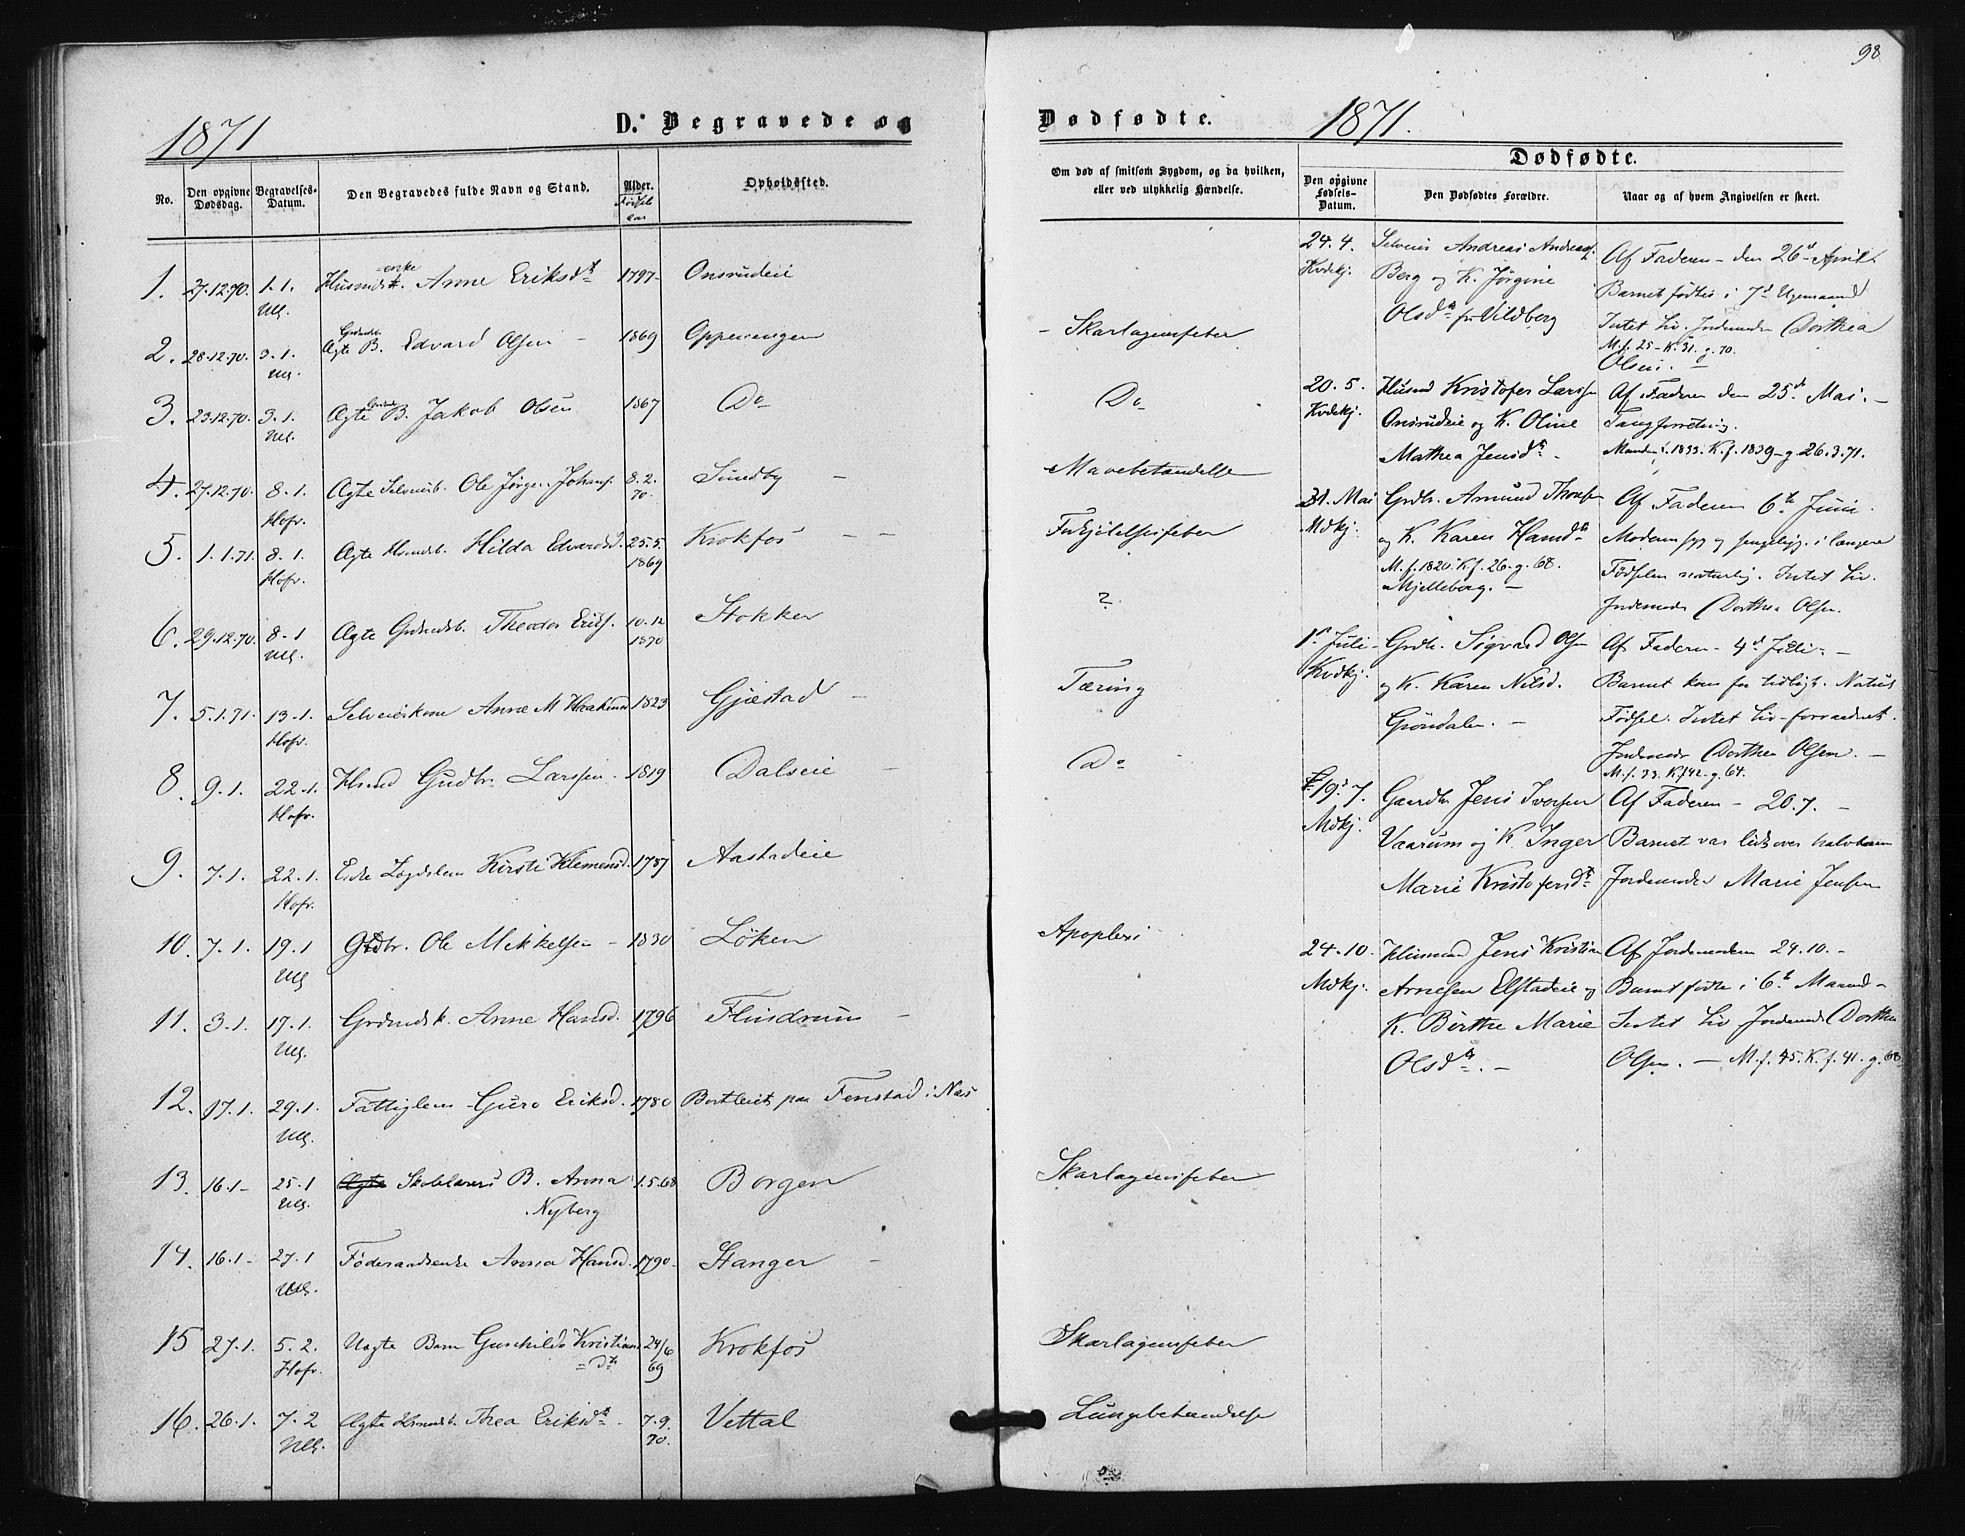 98
1871
D. Begravede og
Dødfødte.
1871.
No.
Den opgivne Dødsdag.
Begravelses-Datum.
Den Begravedes fulde Navn og Stand.
Alder.
Opholdssted.
Om død af smitsom Sygdom, og da hvilken,
eller ved ulykkelig Hændelse.
Dødfødte.
Den opgivne Fødsels-Datum.
Den Dødfødtes Forældre.
Naar og af hvem Angivelsen er skeet.
1. 27.12.70. 1.1. Anne Eriksdt 1797. Onsrudeie
Ull.
2. 28.12.70. 3.1. Ægte B. Edvard Olsen 1869 Oppenengen - Skarlagensfeber
Ull.
3. 23.12.70. 3.1. Ægte B. Jakob Olsen 1867 Do Do
Ull.
4. 27.12.70. 8.1. Ægte Selveierb. Ole Jørgen Johans. 8.2. 70. Sundby - Mavebetændelse
Hofv.
5. 1.1.71. 8.1. Ægte Husmdsb. Hilda Edvardsd. 25.5. 1869 Krokfos - - Forkjølelsesfeber
Hofv.
6. 29.12.70. 8-1 Ægte Grdmdsb. Theodor Eriks. 10.12 1870 Stokker ?
Ull.
7. 5.1.71. 13-1. Selveierkone Anne M. Haakensd 1823 Gjæstad - Tæring
Hofv.
8. 9.1. 22-1. Husmd Gudbr. Larssen - 1819 Dalseie - Do
Hofv.
9. 7.1. 22.1. Enke Lægdslem Kirsti Klemensd. 1787 Aastadeie
Hofv.
10. 7.1. 19.1 Gdbr. Ole Mikkelsen - 1830 Løken Apoplexi
Ull
11. 3.1. 17.1. Grdmdsk. Anne Hansd. 1796 Flusdrum -
Ull.
12. 17.1. 29.1. Fattiglem Guro Eriksd. 1780 Bortleiet paa Fenstad i Næs
Ull.
13. 16.1- 25.1 Ægte Skolelærers B. Anna 1.5.68 Borgen Skarlagensfeber
Ull. Nyberg
14. 16.1- 27.1 Føderaadsenke Anna Hansd. 1790. Stanger -
Ull.
15 27.1. 5.2. Uægte Barn Gunhild Kristians 24/6 69 Krokfos Skarlagensfeber
Hofv. =dt
16. 26.1. 7.2 Ægte Husmdsb. Thea Eriksdt. 7.9. 70. Vettal Lungebetændelse
Ull.
24.4. Selveier Andreas Andreas. Af Faderen - den 26d April
Kvdekj. Berg og K. Jørgine Barnet fødtes i 7d Ugemaaned
Olsdt fr. Vildberg Intet Liv. Jordemoder Dorthea
M.f. 25 - K. 31. g. 70.
Olsen. -
20.5. Husmd Kristofer Larssen Af Faderen den 25d Mai. -
Kvdekj. Onsrudeie og K. Oline Tangforretning.
Mathea Jensdt. Manden f. 1833. K.f. 1839 - g. 26.3.71.
31. Mai Grdbr. Amund Thorsen Af Faderen 6te Juni.
Mdkj. og K. Karen Hansdt Moderen syg og sengeligg. i længere
M.f. 1820. K.f. 26. g. 68. Fødselen naturlig. Intet Liv.
Mjelleborg. - Jordemoder Dorthea Olsen.
1st Juli Grdbr. Sigvard Olsen Af Faderen - 4d Juli. -
Kvdkj. og K. Karen Nilsd. Barnet kom for tidligt. Naturl.
Grøndalen. - Fødsel. Intet Liv - forraadnet.
Jordemoder Dorthea Olsen. -
M.f. 33. K.f. 42 - g. 64.
19.7. Gaardbr Jens Iversen Af Faderen - 20.7. -
Mdkj. Vaarum og K. Inger Barnet var lidt over halvbaaren
Marie Kristofersdt Jordemoder Marie Jensen
24.10. Husmand Jens Kristian Af Jordemoderen 24.10. -
Mdkj. Arnesen Elstadeie og Barnet fødte i 6te Maaned -
K. Birthe Marie Intet Liv Jordemoder Dorthea
Olsdt. - Olsen. - M.f. 45. K.f. 41. g. 68